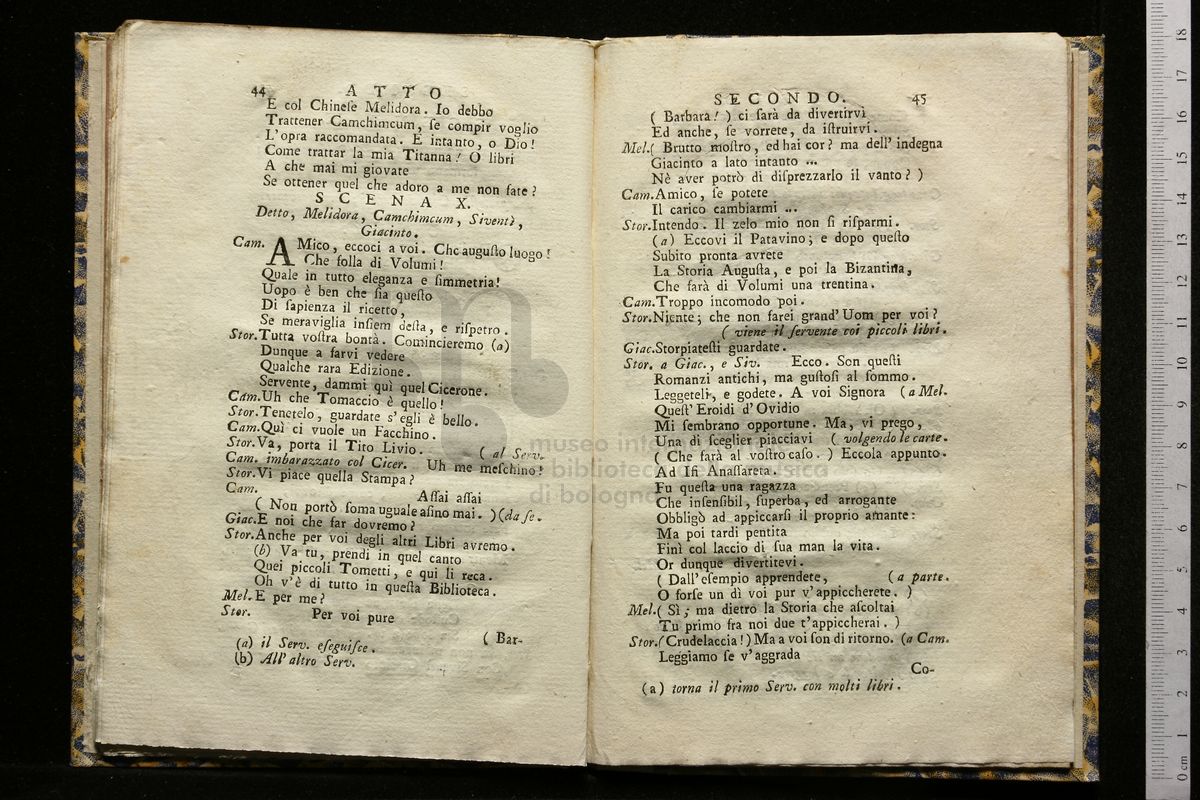 44 ATTO
E col Chineſe Melidora. Io debbo
Trattener Camchimcum, ſe compir voglio
L'opra raccomandata. E intanto, o Dio!
Come trattar la mia Titanna! O libri
A che mai mi giovate
Se ottener quel che adoro a me non fate?
SCENA X.
Detto, Melidora, Camchimcum, Siventì,
Giacinto.
Cam. AMico, eccoci a voi. Che auguſto luogo!
Che folla di Volumi!
Quale in tutto eleganza e ſimmetria!
Uopo è ben che ſia queſto
Di ſapienza il ricetto,
Se meraviglia inſiem deſta, e riſpetro.
Stor. Tutta voſtra bontà. Comincieremo (a)
Dunque a farvi vedere
Qualche rara Edizione.
Servente, dammi quì quel Cicerone.
Cam. Uh che Tomaccio è quello!
Stor. Tenetelo, guardate s'egli è bello.
Cam. Quì ci vuole un Facchino.
Stor. Va, porta il Tito Livio. (al Serv.
Cam. imbarazzato col Cicer. Uh me meſchino!
Stor. Vi piace quella Stampa?
Cam. Aſſai aſſai
( Non portò ſoma uguale aſino mai. ) (da ſe.
Giac. E noi che far dovremo?
Stor. Anche per voi degli altri Libri avremo.
(b) Va tu, prendi in quel canto
Quei piccoli Tometti, e qui li reca.
Oh v'è di tutto in queſta Biblioteca.
Mel. E per me?
Stor. Per voi pure
( Bar-
(a) il Serv. eſeguiſce.
(b) All'altro Serv.
SECONDO. 45
( Barbara! ) ci ſarà da divertirvi
Ed anche, ſe vorrete, da iſtruirvi.
Mel. ( Brutto moſtro, ed hai cor? ma dell'indegna
Giacinto a lato intanto ...
Nè aver potrò di diſprezzarlo il vanto? )
Cam. Amico, ſe potete
Il carico cambiarmi ...
Stor. Intendo. Il zelo mio non ſi riſparmi.
(a) Eccovi il Patavino; e dopo queſto
Subito pronta avrete
La Storia Auguſta, e poi la Bizantina,
Che ſarà di Volumi una trentina.
Cam. Troppo incomodo poi.
Stor. Niente; che non farei grand'Uom per voi?
( viene il ſervente coi piccoli libri.
Giac. Storpiateſti guardate.
Stor. a Giac., e Siv. Ecco. Son queſti
Romanzi antichi, ma guſtoſi al ſommo.
Leggeteli, e godete. A voi Signora (a Mel.
Queſt'Eroidi d'Ovidio
Mi ſembrano opportune. Ma, vi prego,
Una di ſceglier piacciavi ( volgendo le carte.
( Che farà al voſtro caſo. ) Eccola appunto.
Ad Ifi Anaſſareta.
Fu queſta una ragazza
Che inſenſibil, ſuperba, ed arrogante
Obbligò ad appiccarſi il proprio amante:
Ma poi tardi pentita
Finì col laccio di ſua man la vita.
Or dunque divertitevi.
( Dall'eſempio apprendete, (a parte.
O forſe un dì voi pur v'appiccherete. )
Mel. ( Sì; ma dietro la Storia che aſcoltai
Tu primo fra noi due t'appiccherai. )
Stor. ( Crudelaccia!) Ma a voi ſon di ritorno. (a Cam.
Leggiamo ſe v'aggrada
Co-
(a) torna il primo Serv. con molti libri.